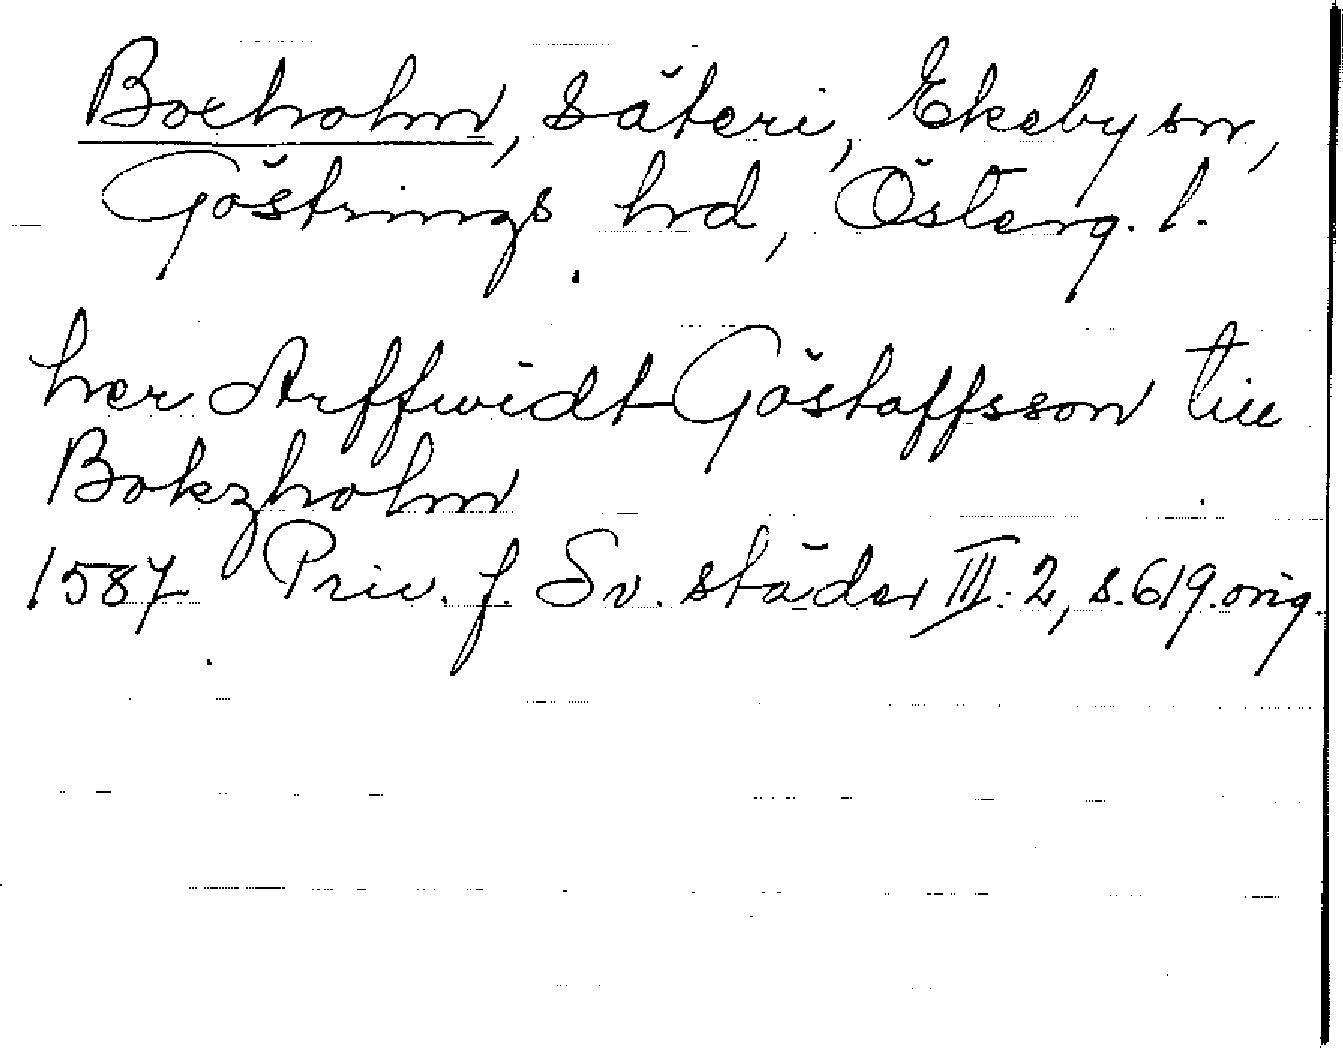 Boxholm, säteri, Ekeby sn,
Göstrings hrd, Österg. l.
her Arffwidt Göstaffsson till
Bokzholm
1587 Priv. f. Sv. städer III:2, s. 619. orig.